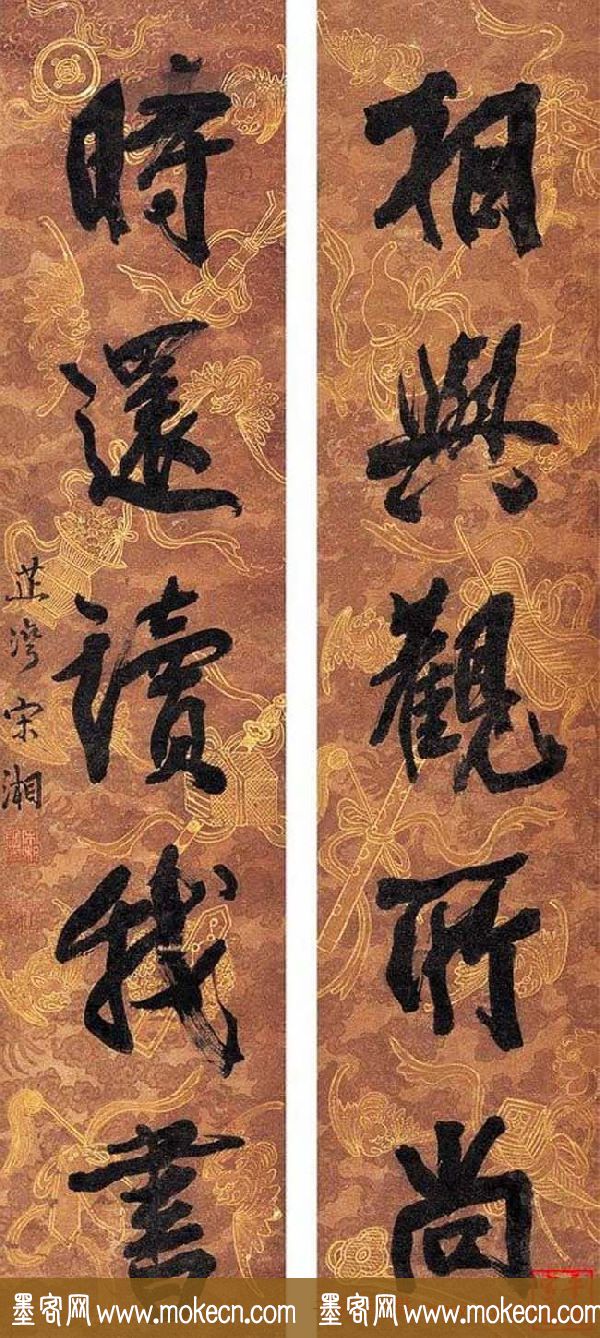 相與觀所尚
時還讀我書
芷灣宋湘
墨客网 www.mokecn.com
墨客网 www.mokecn.com